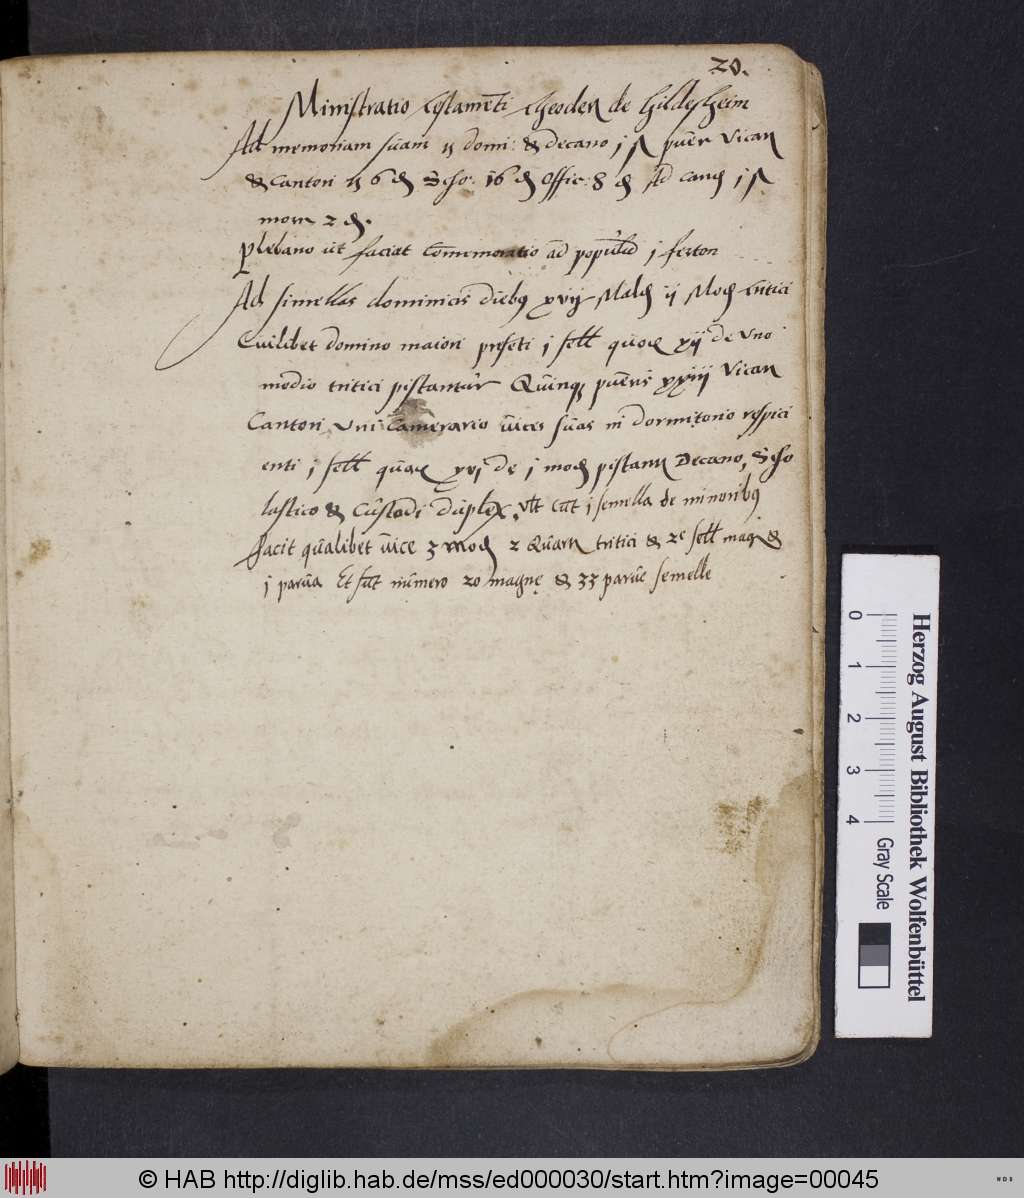 20.
Ministratio testamēti theoderi de hildesheim
Ad memoriam suam domi: & decano j puer Vicar
& Cantori 6 Scho: 16 Offic: 8 Ad cand j
morn 2
Plebano ut faciat Comemoratio ad populū j ferton
Ad simellas dominicis diebꝯ xvij Mald ij Mod tritici
Cuilibet domino maiori preseti j sell quor xij de Uno
modio tritici pistantur Quinqꝫ pueris xxiij Vicar
Cantori, Uni Camerario vices suas in dormitorio respici
enti j sell quar xvj de j mod pistant Decano, Scho
lastico & Custodi duplex, ult j semella de minoribꝯ
Facit qualibet vice 3 mod 2 Quart tritici & sell mag &
j parua Et sut numero 20 magne & 33 parue semelle
Herzog August Bibliothek Wolfenbüttel
0 1 2 3 4
Gray Scale
© HAB http://diglib.hab.de/mss/ed000030/start.htm?image=00045